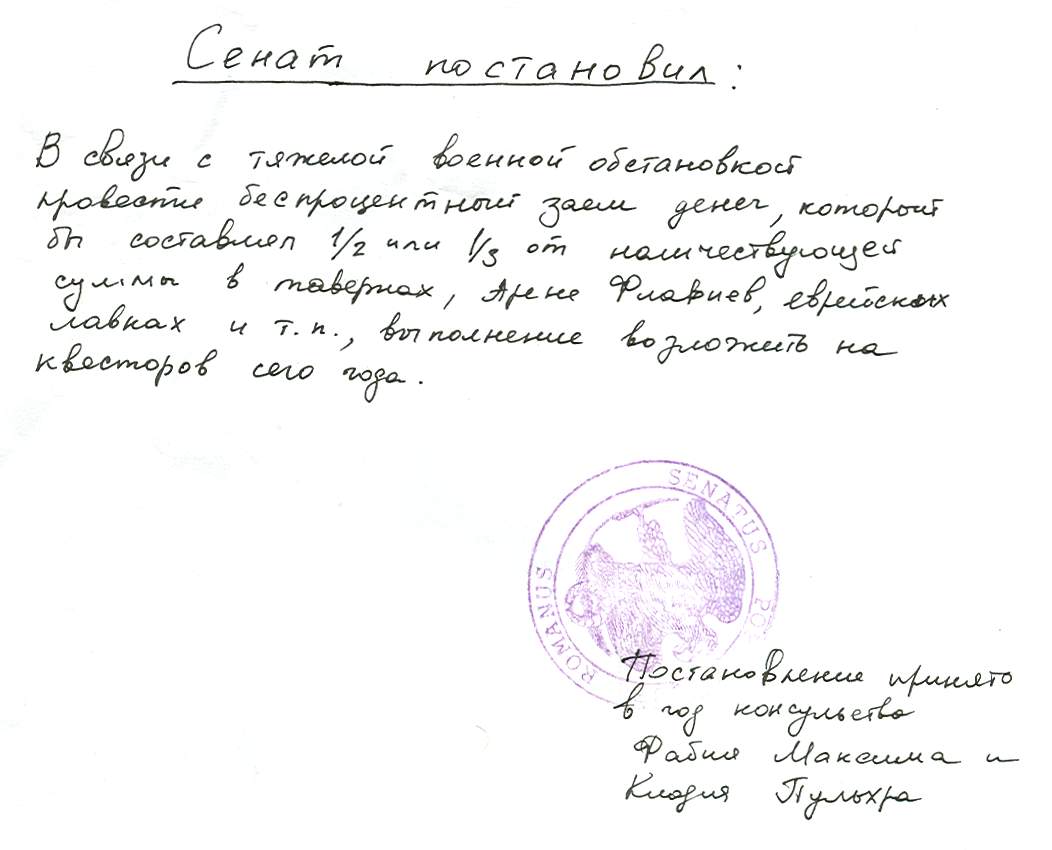 Сенат постановил:
В связи с тяжелой военной обстановкой
провести беспроцентный заем денег, который
бы составлял 1/2 или 1/3 от наличествующей
суммы в тавернах, Арене Флавиев, еврейских
лавках и т.п., выполнение возложить на
квесторов сего года.
SENATUS PO
ROMANUS
Постановление принято
в год консульства
Фабия Максима и
Клодия Пульхра